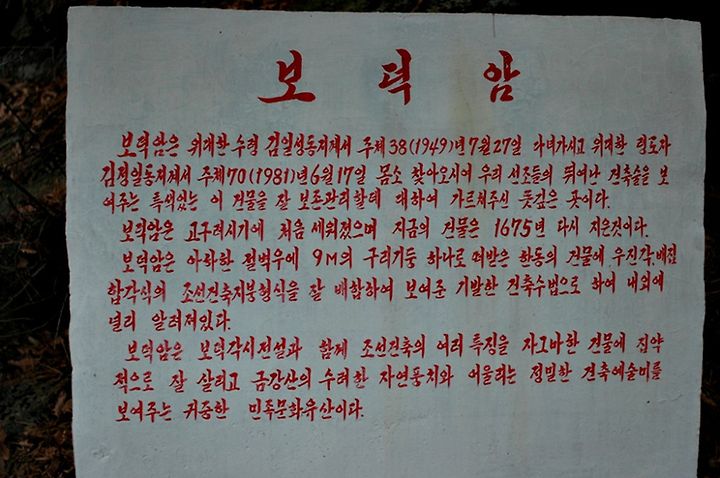 보덕암
보덕암은 위대한 수령 김일성동지께서 주체38(1949)년 7월 27일 다녀가시고 위대한 령도자
김정일동지께서 주체70(1981)년 6월 17일 몸소 찾아오시여 우리 선조들의 뛰여난 건축술을 보
여주는 특색있는 이 건물을 잘 보존관리할데 대하여 가르쳐주신 뜻깊은 곳이다.
보덕암은 고구려시기에 처음 세워졌으며 지금의 건물은 1675년 다시 지은것이다.
보덕암은 아찔한 절벽우에 9M의 구리기둥 하나로 떠받은 한동의 건물에 우진각, 배집
합각식의 조선건축지붕형식을 잘 배합하여 보여준 기발한 건축수법으로 하여 내외에
널리 알려져있다.
보덕암은 보덕각시전설과 함께 조선건축의 여러 특징을 자그마한 건물에 집약
적으로 잘 살리고 금강산의 수려한 자연풍치와 어울리는 정밀한 건축예술미를
보여주는 귀중한 민족문화유산이다.